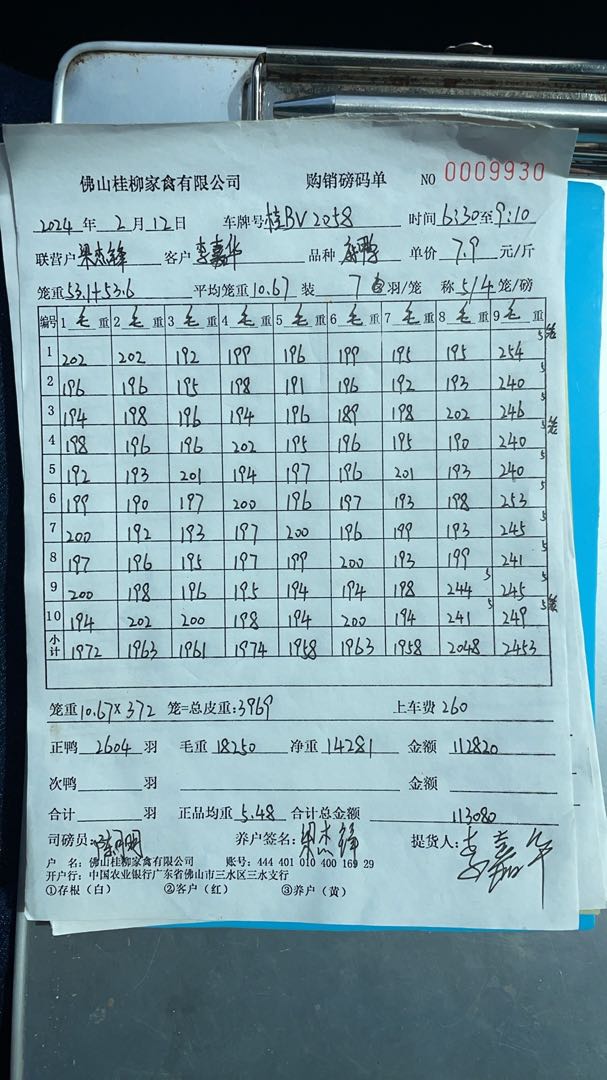 佛山桂柳家禽有限公司 购销磅码单 NO 0009930
2024年2月12日 车牌号桂BV2058 时间6:30至9:10
联营户梁杰锋 客户李嘉华 品种 鸭 单价7.9元/斤
笼重53.1+53.6 平均笼重10.67 装7羽/笼 称5/4笼/磅
编号 1毛重 2毛重 3毛重 4毛重 5毛重 6毛重 7毛重 8毛重 9毛重
1 202 202 192 199 196 199 195 195 254 5笼
2 196 196 195 198 191 196 192 193 240 5
3 194 198 196 194 196 189 198 202 246 5
4 198 196 196 202 195 196 195 190 240 5笼
5 192 193 201 194 197 196 201 193 240 5
6 199 190 197 200 196 197 193 198 253 5
7 200 192 193 197 200 196 199 193 245 5
8 197 196 195 197 199 200 193 199 241 5
9 200 198 196 195 194 194 198 244 5 245 5
10 194 202 200 198 194 200 194 241 5 249 5笼
小计 1972 1963 1961 1974 1958 1963 1958 2048 2453
笼重10.67×372 笼=总皮重:3969 上车费260
正鸭 2604 羽 毛重18250 净重14281 金额 112820
次鸭 羽 金额
合计 羽 正品均重5.48 合计总金额 113080
司磅员: 养户签名:梁杰锋 提货人:李嘉华
户 名:佛山桂柳家禽有限公司 账号:444 401 010 400 169 29
开户行:中国农业银行广东省佛山市三水区三水支行
①存根(白) ②客户(红) ③养户(黄)